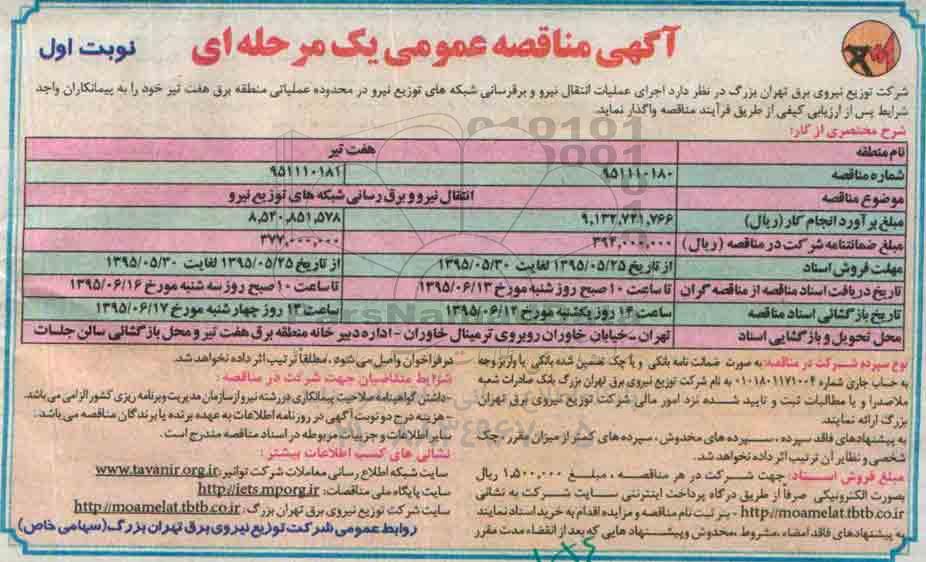 آگهی مناقصه عمومی یک مرحله ای
نوبت اول
شرکت توزیع نیروی برق تهران بزرگ در نظر دارد اجرای عملیات انتقال نیرو و برقرسانی شبکه های توزیع نیرو در محدوده عملیاتی منطقه برق هفت تیر خود را به پیمانکاران واجد
شرایط پس از ارزیابی کیفی از طریق فرآیند مناقصه واگذار نماید.
شرح مختصری از کار:
نام منطقه هفت تیر
شماره مناقصه ۹۵۱۱۱۰۱۸۰ ۹۵۱۱۱۰۱۸۱
موضوع مناقصه انتقال نیرو و برق رسانی شبکه های توزیع نیرو
مبلغ برآورد انجام کار (ریال) ۹,۱۳۲,۷۲۱,۷۶۶ ۸,۵۲۰,۸۵۱,۵۷۸
مبلغ ضمانتنامه شرکت در مناقصه (ریال) ۳۹۲,۰۰۰,۰۰۰ ۳۷۷,۰۰۰,۰۰۰
مهلت فروش اسناد از تاریخ ۱۳۹۵/۰۵/۲۵ لغایت ۱۳۹۵/۰۵/۳۰ از تاریخ ۱۳۹۵/۰۵/۲۵ لغایت ۱۳۹۵/۰۵/۳۰
تاریخ دریافت اسناد مناقصه از مناقصه گران تا ساعت ۱۰ صبح روز شنبه مورخ ۱۳۹۵/۰۶/۱۳ تا ساعت ۱۰ صبح روز سه شنبه مورخ ۱۳۹۵/۰۶/۱۶
تاریخ بازگشائی اسناد مناقصه ساعت ۱۴ روز یکشنبه مورخ ۱۳۹۵/۰۶/۱۴ ساعت ۱۴ روز چهار شنبه مورخ ۱۳۹۵/۰۶/۱۷
محل تحویل و بازگشایی اسناد تهران -خیابان خاوران روبروی ترمینال خاوران - اداره دبیر خانه منطقه برق هفت تیر و محل بازگشائی سالن جلسات
نوع سپرده شرکت در مناقصه: به صورت ضمانت نامه بانکی و یا چک تضمین شده بانکی یا واریز وجه
به حساب جاری شماره ۰۱۰۱۸۰۱۱۷۱۰۰۴ به نام شرکت توزیع نیروی برق تهران بزرگ بانک صادرات شعبه
ملاصدرا و یا مطالبات ثبت و تایید شده نزد امور مالی شرکت توزیع نیروی برق تهران
بزرگ ارائه نمایند.
به پیشنهادهای فاقد سپرده ، سپرده های مخدوش ، سپرده های کمتر از میزان مقرر ، چک
شخصی و نظایر آن ترتیب اثر داده نخواهد شد.
مبلغ فروش اسناد: جهت شرکت در هر مناقصه ، مبلغ ۱,۵۰۰,۰۰۰ ریال
بصورت الکترونیکی صرفاً از طریق درگاه پرداخت اینترنتی سایت شرکت به نشانی
http://moamelat.tbtb.co.ir - بنر ثبت نام مناقصه و مزایده اقدام به خرید اسناد نمایند
به پیشنهادهای فاقد امضاء ،مشروط ،مخدوش و پیشنهاد هایی که بعد از انقضاء مدت مقرر
در فراخوان واصل می شود ، مطلقاً ترتیب اثر داده نخواهد شد.
شرایط متقاضیان جهت شرکت در مناقصه :
-داشتن گواهینامه صلاحیت پیمانکاری در رشته نیرو از سازمان مدیریت و برنامه ریزی کشور الزامی می باشد.
- هزینه درج دو نوبت آگهی در روزنامه اطلاعات به عهده برنده یا برندگان مناقصه می باشد:
سایر اطلاعات و جزییات مربوطه در اسناد مناقصه مندرج است.
نشانی های کسب اطلاعات بیشتر :
سایت شبکه اطلاع رسانی معاملات شرکت توانیر:www.tavanir.org.ir
سایت پایگاه ملی مناقصات: http://iets.mporg.ir
سایت شرکت توزیع نیروی برق تهران بزرگ: http://moamelat.tbtb.co.ir
روابط عمومی شرکت توزیع نیروی برق تهران بزرگ(سهامی خاص)